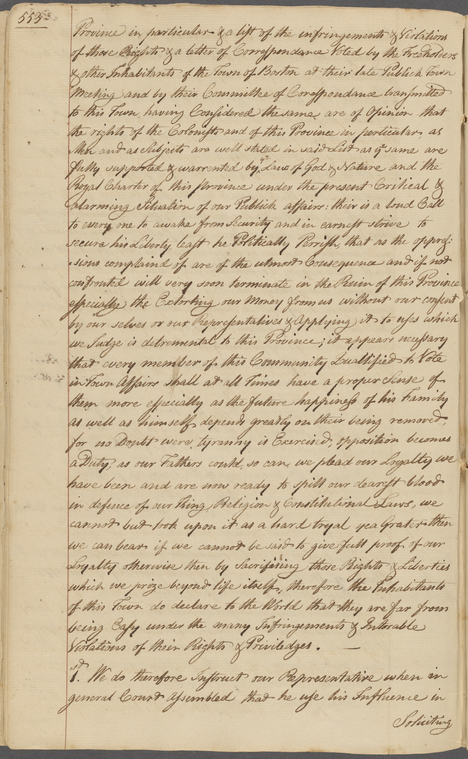 555
Province in particular & a list of the infringements & Violations
of those Rights & a letter of Correspondance Voted by the Freeholders
& other Inhabitants of the Town of Boston at their late Publick Town
Meeting and by their Committe of Correspondance transmitted
to this Town, having Considered the same, are of Opinion that
the rights of the Colonists and of this Province in perticular, as
Men and as Subjects are well stated in said List as ye same are
fully supported & warrented by ye Laws of God & Nature and the
Royal Charter of this province under the present Critical &
Alarming Situation of our Publick affairs: their is a loud Call
to every one to awake from Security and in earnest strive to
secure his Liberty least he Politically Perrish, that as the oppres=
sions complained of are of the utmost Consequence and if not
confronted will very soon terminate in the Ruin of this Province
especially the Extorting our Money from us without our consent
by our selves or our Representatives & Applying it to uses which
we Judge is detremental to this Province; it appears necessary
that every member of this Community Qualtified to Vote
in Town Affairs shall at all times have a proper Sense of
them more especially as the future happiness of his Family
as well as himself depends greatly on their being removed,
for no Doubt were tyranny is Exercised, opposition becomes
a Duty, as our Fathers could, so can we plead our Loyalty we
have been and are now ready to spill our dearest blood
in defence of our King, Religion & Constitutional Laws, we
cannot but look upon it as a hard tryal yea Grater then
we can bear if we cannot be said to give full proof of our
Loyalty otherwise then by Sacrifising those Rights & Liberties
which we prize beyond life itself, therefore the Inhabitants
of this Town do declare to the World that they are far from
being Easy under the many Infringements & Intorable
Violations of their Rights & Priviledges. —
1.st We do therefore Instruct our Representative when in
general Court Assembled that he use his Influence in
Soliciting